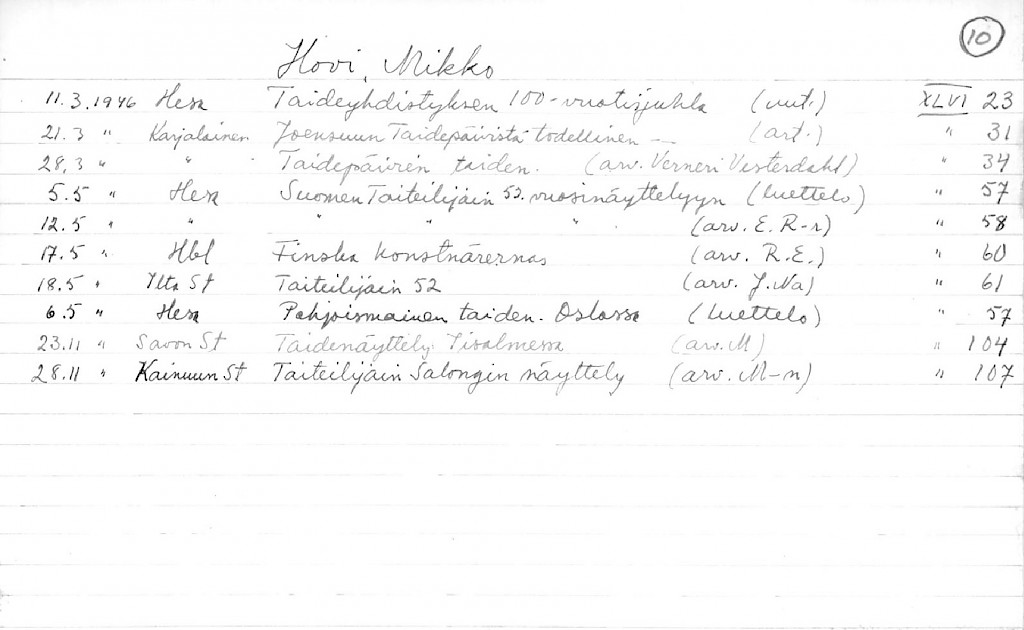 10
Hovi, Mikko
11.3.1946 Hesa Taideyhdistyksen 100-vuotisjuhla (uut.) XLVI 23
21.3 " Karjalainen Joensuun Taidepäivistä todellinen — (art.) " 31
28.3 " " Taidepäivien taiden. (arv. Verneri Vesterdahl) " 34
5.5 " Hesa Suomen Taiteilijain 52. vuosinäyttelyyn (luettelo) " 57
12.5 " " " " " (arv. E. R-r) " 58
17.5 " Hbl Finska konstnärernas (arv. R.E.) " 60
18.5 " Ilta St Taiteilijain 52 (arv. J. Na) " 61
6.5 " Hesa Pohjoismainen taiden. Oslossa (luettelo) " 57
23.11 " Savon St Taidenäyttely Iisalmessa (arv. M) " 104
28.11 " Kainuun St Taiteilijain Salongin näyttely (arv. M-n) " 107